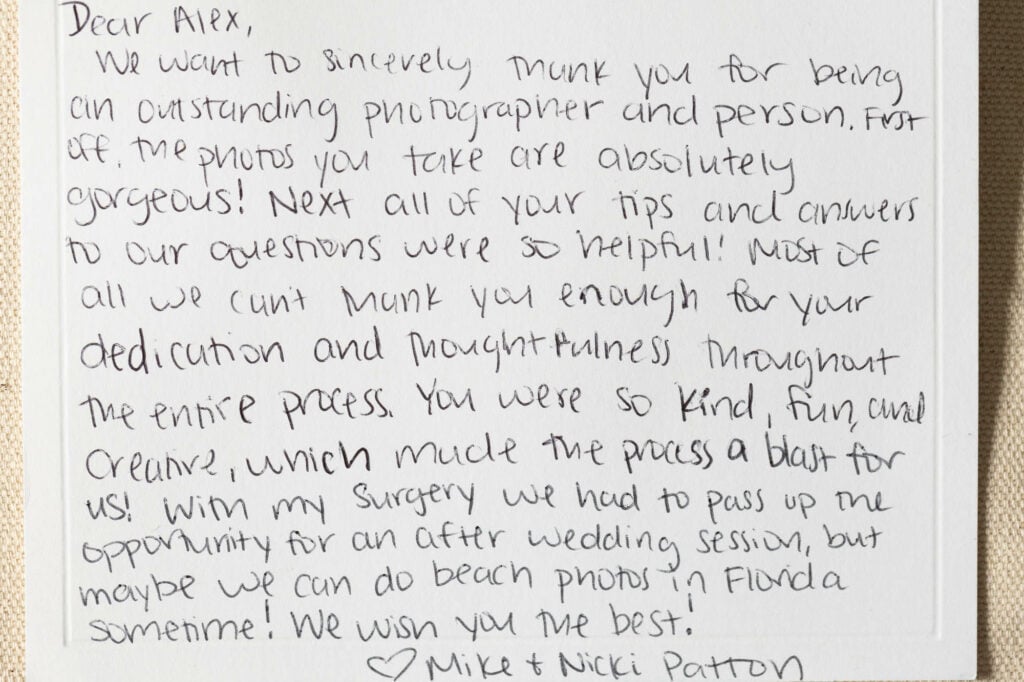 Dear Alex,
We want to sincerely thank you for being
an outstanding photographer and person. First
off, the photos you take are absolutely
gorgeous! Next all of your tips and answers
to our questions were so helpful! Most of
all we can't thank you enough for your
dedication and thoughtfulness throughout
the entire process. You were so kind, fun, and
creative, which made the process a blast for
us! With my surgery we had to pass up the
opportunity for an after wedding session, but
maybe we can do beach photos in Florida
sometime! We wish you the best!
♡ Mike + Nicki Patton